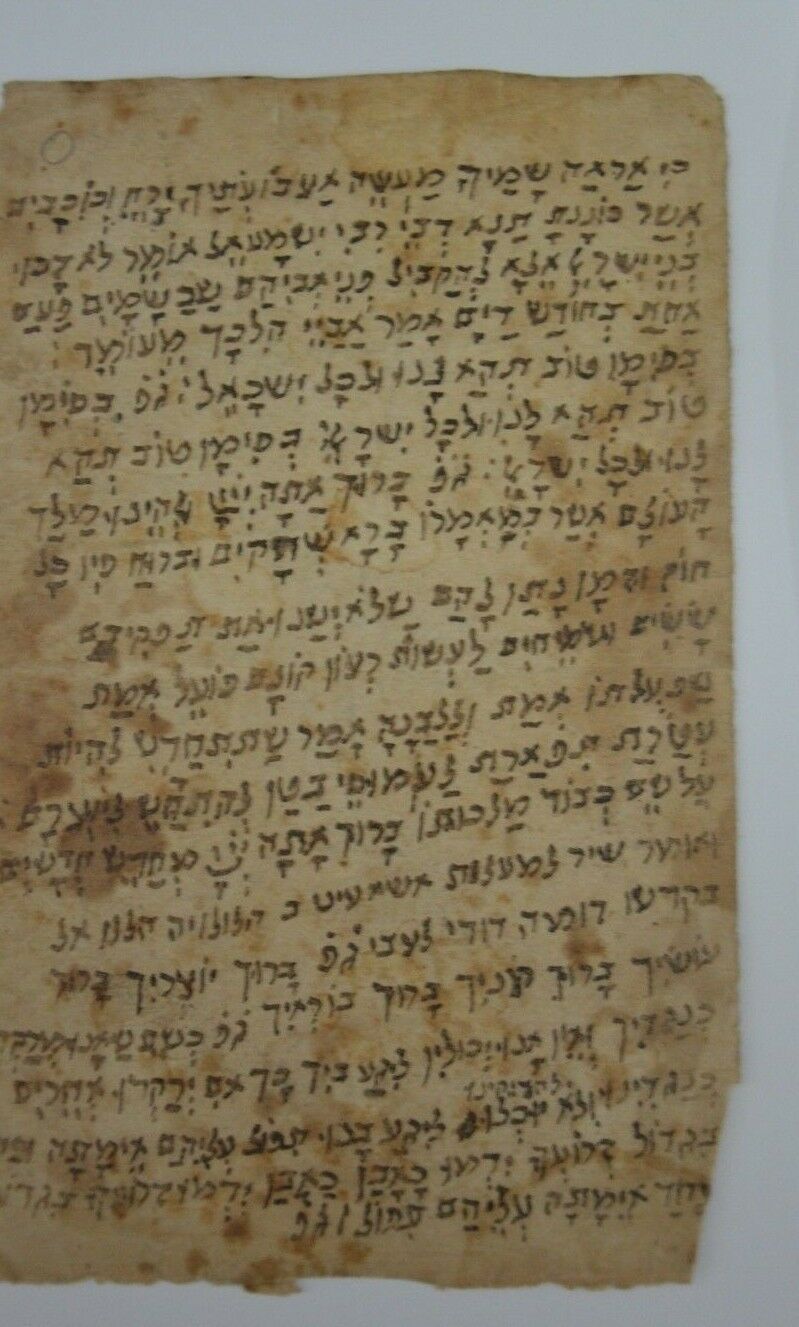 כִּי אֶרְאֶה שָׁמֶיךָ מַעֲשֵׂה אֶצְבְּעֹתֶיךָ יָרֵחַ וְכוֹכָבִים
אֲשֶׁר כּוֹנָנְתָּ תַּנָא דְבֵי רִבִּי יִשְׁמָעֵאל אוֹמֵר לֹא זָכוּ
בְּנֵי יִשְׂרָאֵל אֶלָא לְהַקְבִּיל פְּנֵי אֲבִיהֶם שֶׁבַּשָׁמַיִם פַּעַם
אַחַת בְּחוֹדֶשׁ דַיָם אָמַר אַבַּיֵי הִלְכָּךְ מְעוּמָד
בְּסִימָן טוֹב תְּהֵא לָנוּ וּלְכָל יִשׂרָאֵל ג֗פ֗ בְּסִימָן
טוֹב תְּהֵא לָנוּ וּלְכָל יִשְׂרָאֵל בְּסִימָן טוֹב תְּהֵא
לָנוּ וּלְכָל יִשְׂרָאֵל ג֗פ֗ בָּרוּךְ אַתָּה יְיָ אֱלֹהֵינוּ מֶלֶךְ
הָעוֹלָם אֲשֶׁר בְּמַאֲמָרוֹ בָּרָא שְׁחָקִים וּבְרוּחַ פִּיו כָּל
חוֹק וּזְמָן נָתַן לָהֶם שֶׁלֹא יְשַׁנוּ אֶת תַּפְקִידָם
שָׂשִׂים וּשְׂמֵיחִים לַעֲשׂוֹת רְצוֹן קוֹנָם פּוֹעֵל אֱמֶת
שֶׁפְּעֻלָתוֹ אֱמֶת וְלַלְבָנָה אָמַר שֶׁתִּתְחַדֵשׁ לִהְיוֹת
עֲטֶרֶת תִּפְאֶרֶת לַעֲמוּסֵי בֶטֶן לְהִתְחַדֵשׁ לְיוֹצְרָם
עַל שֵׁם כְּבוֹד מַלְכוּתוֹ בָּרוּךְ אַתָּה יְיָ מְחַדֵשׁ חֳדָשִׁים
ואומר שיר למעלות אשא עיני ב הללויה הללו אל
בקדשו דומה דודי לצבי ג֗פ֗ בָּרוּךְ יוֹצְרִיךְ בָּרוּךְ
עוֹשִׂיךְ בָּרוּךְ קוֹנִיךְ בָּרוּךְ בּוֹרְאִיךְ ג֗פ֗ כְּשֵׁם שֶׁאָנוּ מְרַקְּדִים
כְּנֶגְדִיךְ וְאֵין אָנוּ יְכוֹלִין לִיגַע בִּיךְ כָּךְ אִם יְרַקְּדוּ אֲחֵרִים
כְּנֶגְדֵינוּ להזיקינו וְלֹא יוּכְלוּ לִיגַע בָּנוּ תִּפֹּל עֲלֵיהֶם אֵימָתָה
בִּגְדוֹל זְרוֹעֲךָ יִדְּמוּ כָּאָבֶן כָּאָבֶן יִדְּמוּ זְרוֹעֲךָ בִּגְדוֹל
וָפַחַד אֵימָתָה עֲלֵיהֶם תִּפּוֹל ג֗פ֗